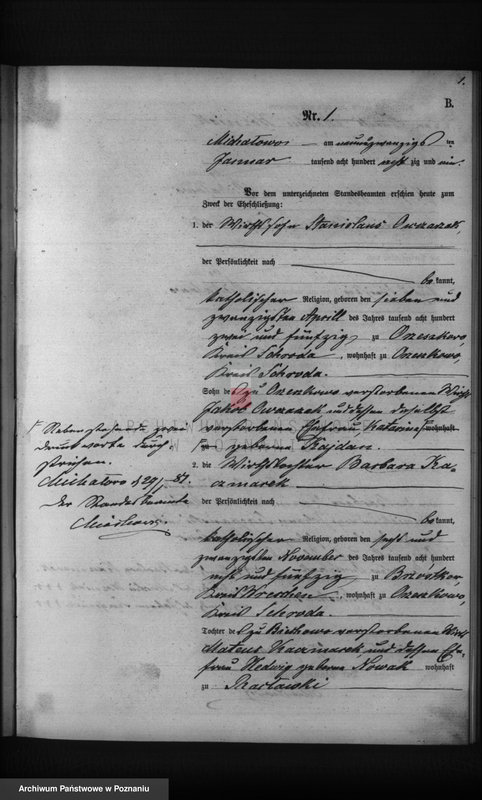 1.
B.
Nr. 1.
Michalowo am neunundzwanzigsten
Januar tausend acht hundert achtzig und ein.
Vor dem unterzeichneten Standesbeamten erschien heute zum
Zweck der Eheschließung:
1. der Wirthssohn Stanislaus Owczarzak
der Persönlichkeit nach
bekannt,
katholischer Religion, geboren den sieben und
zwanzigsten April des Jahres tausend acht hundert
zwei und fünfzig zu Orzeszkowo,
Kreis Schroda, wohnhaft zu Orzeszkowo,
Kreis Schroda.
Sohn des zu Orzeszkowo verstorbenen Wirth
Jakob Owczarzak und dessen daselbst
verstorbene Ehefrau Katarina wohnhaft
zu geborene Kajdan.
2. die Wirthstochter Barbara Ka-
czmarek
der Persönlichkeit nach
bekannt,
katholischer Religion, geboren den sechs und
zwanzigsten November des Jahres tausend acht hundert
acht und fünfzig zu
Kreis Wreschen, wohnhaft zu Orzeszkowo,
Kreis Schroda.
Tochter des zu verstorbenen Wirth
Mateus Kaczmarek und dessen Ehe-
frau Hedwig geborene Nowak wohnhaft
zu
Nebenstehende zwei
Druckworte durch-
strichen.
Michalowo d. 29/1 81.
Der Standesbeamte
Archiwum Państwowe w Poznaniu